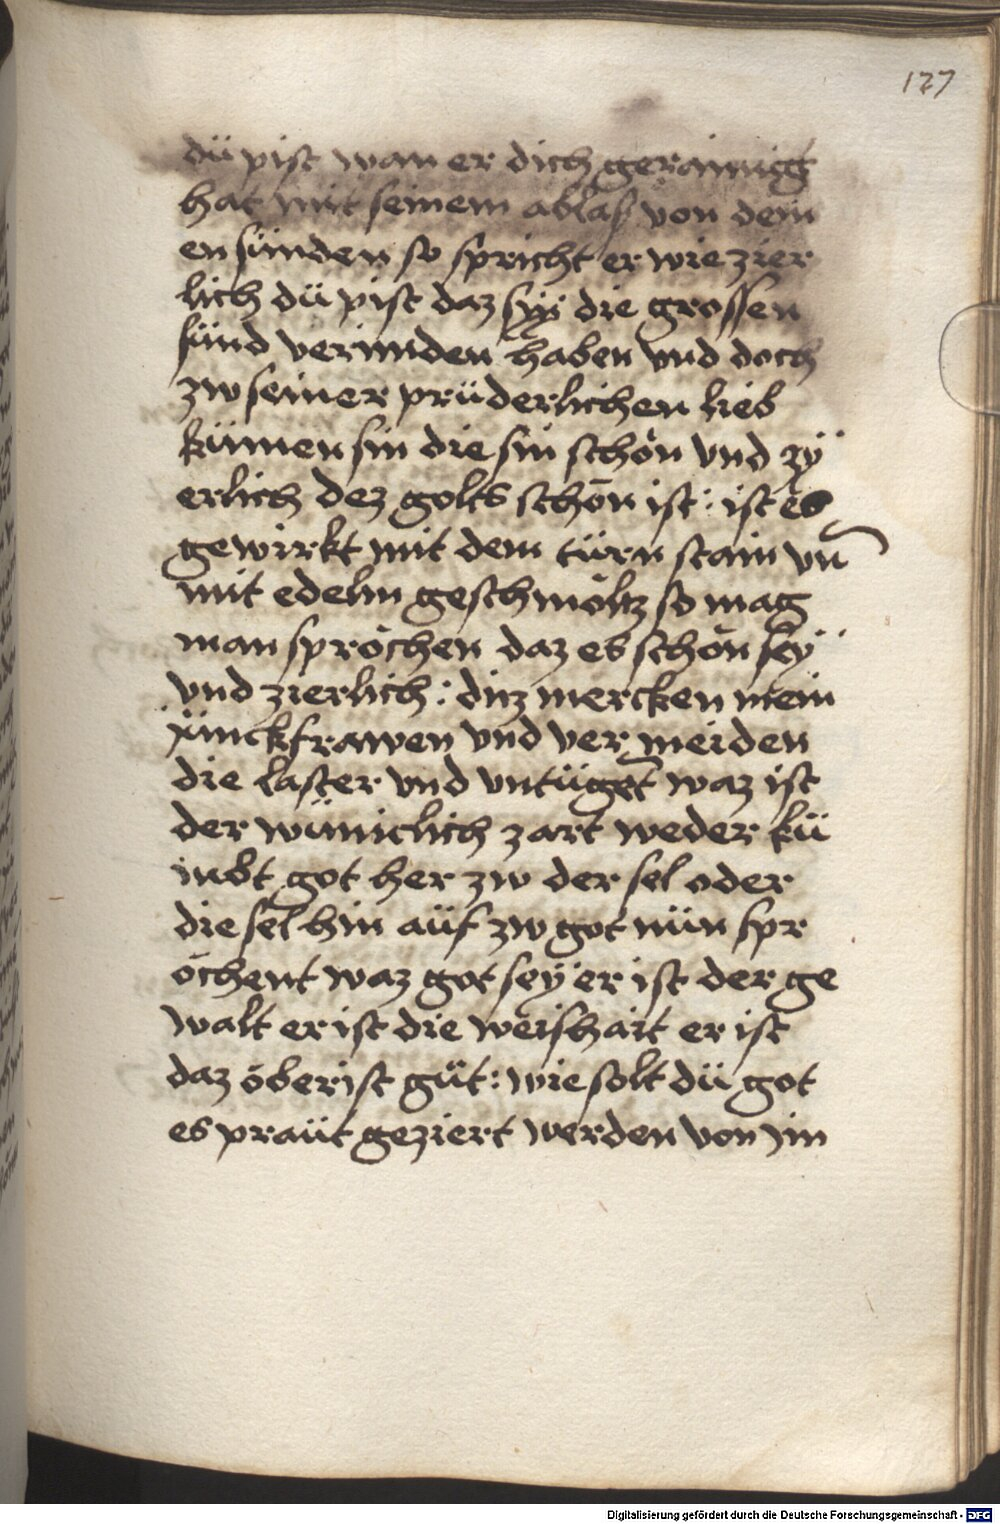 127
dü pist wan er dich gerainigg
hat mit seinem ablaß von dem
en sünden so spricht er wie zier
lich dü pist daz sÿ die grossen
sünd verwnden haben vnd doch
zw seiner prüderlichen lieb
kümen sin die sin schön vnd zÿ
erlich dez golts schön ist : ist es
gewirkt mit dem türn stain vn̄
mit edelm geschmöltz so mag
man spröchen daz es schön seÿ
vnd zierlich : diz mercken mein
jünckfrawen vnd ver meiden
die laster vnd vntüget waz ist
der wüniclich zart weder kü
mbt got her zw der sel oder
die sel hin aüf zw got nün spr
öchent waz got seÿ er ist der ge
walt er ist die weishait er ist
daz öberist güt : wie solt dü got
es praüt geziert werden von jm
Digitalisierung gefördert durch die Deutsche Forschungsgemeinschaft - DFG